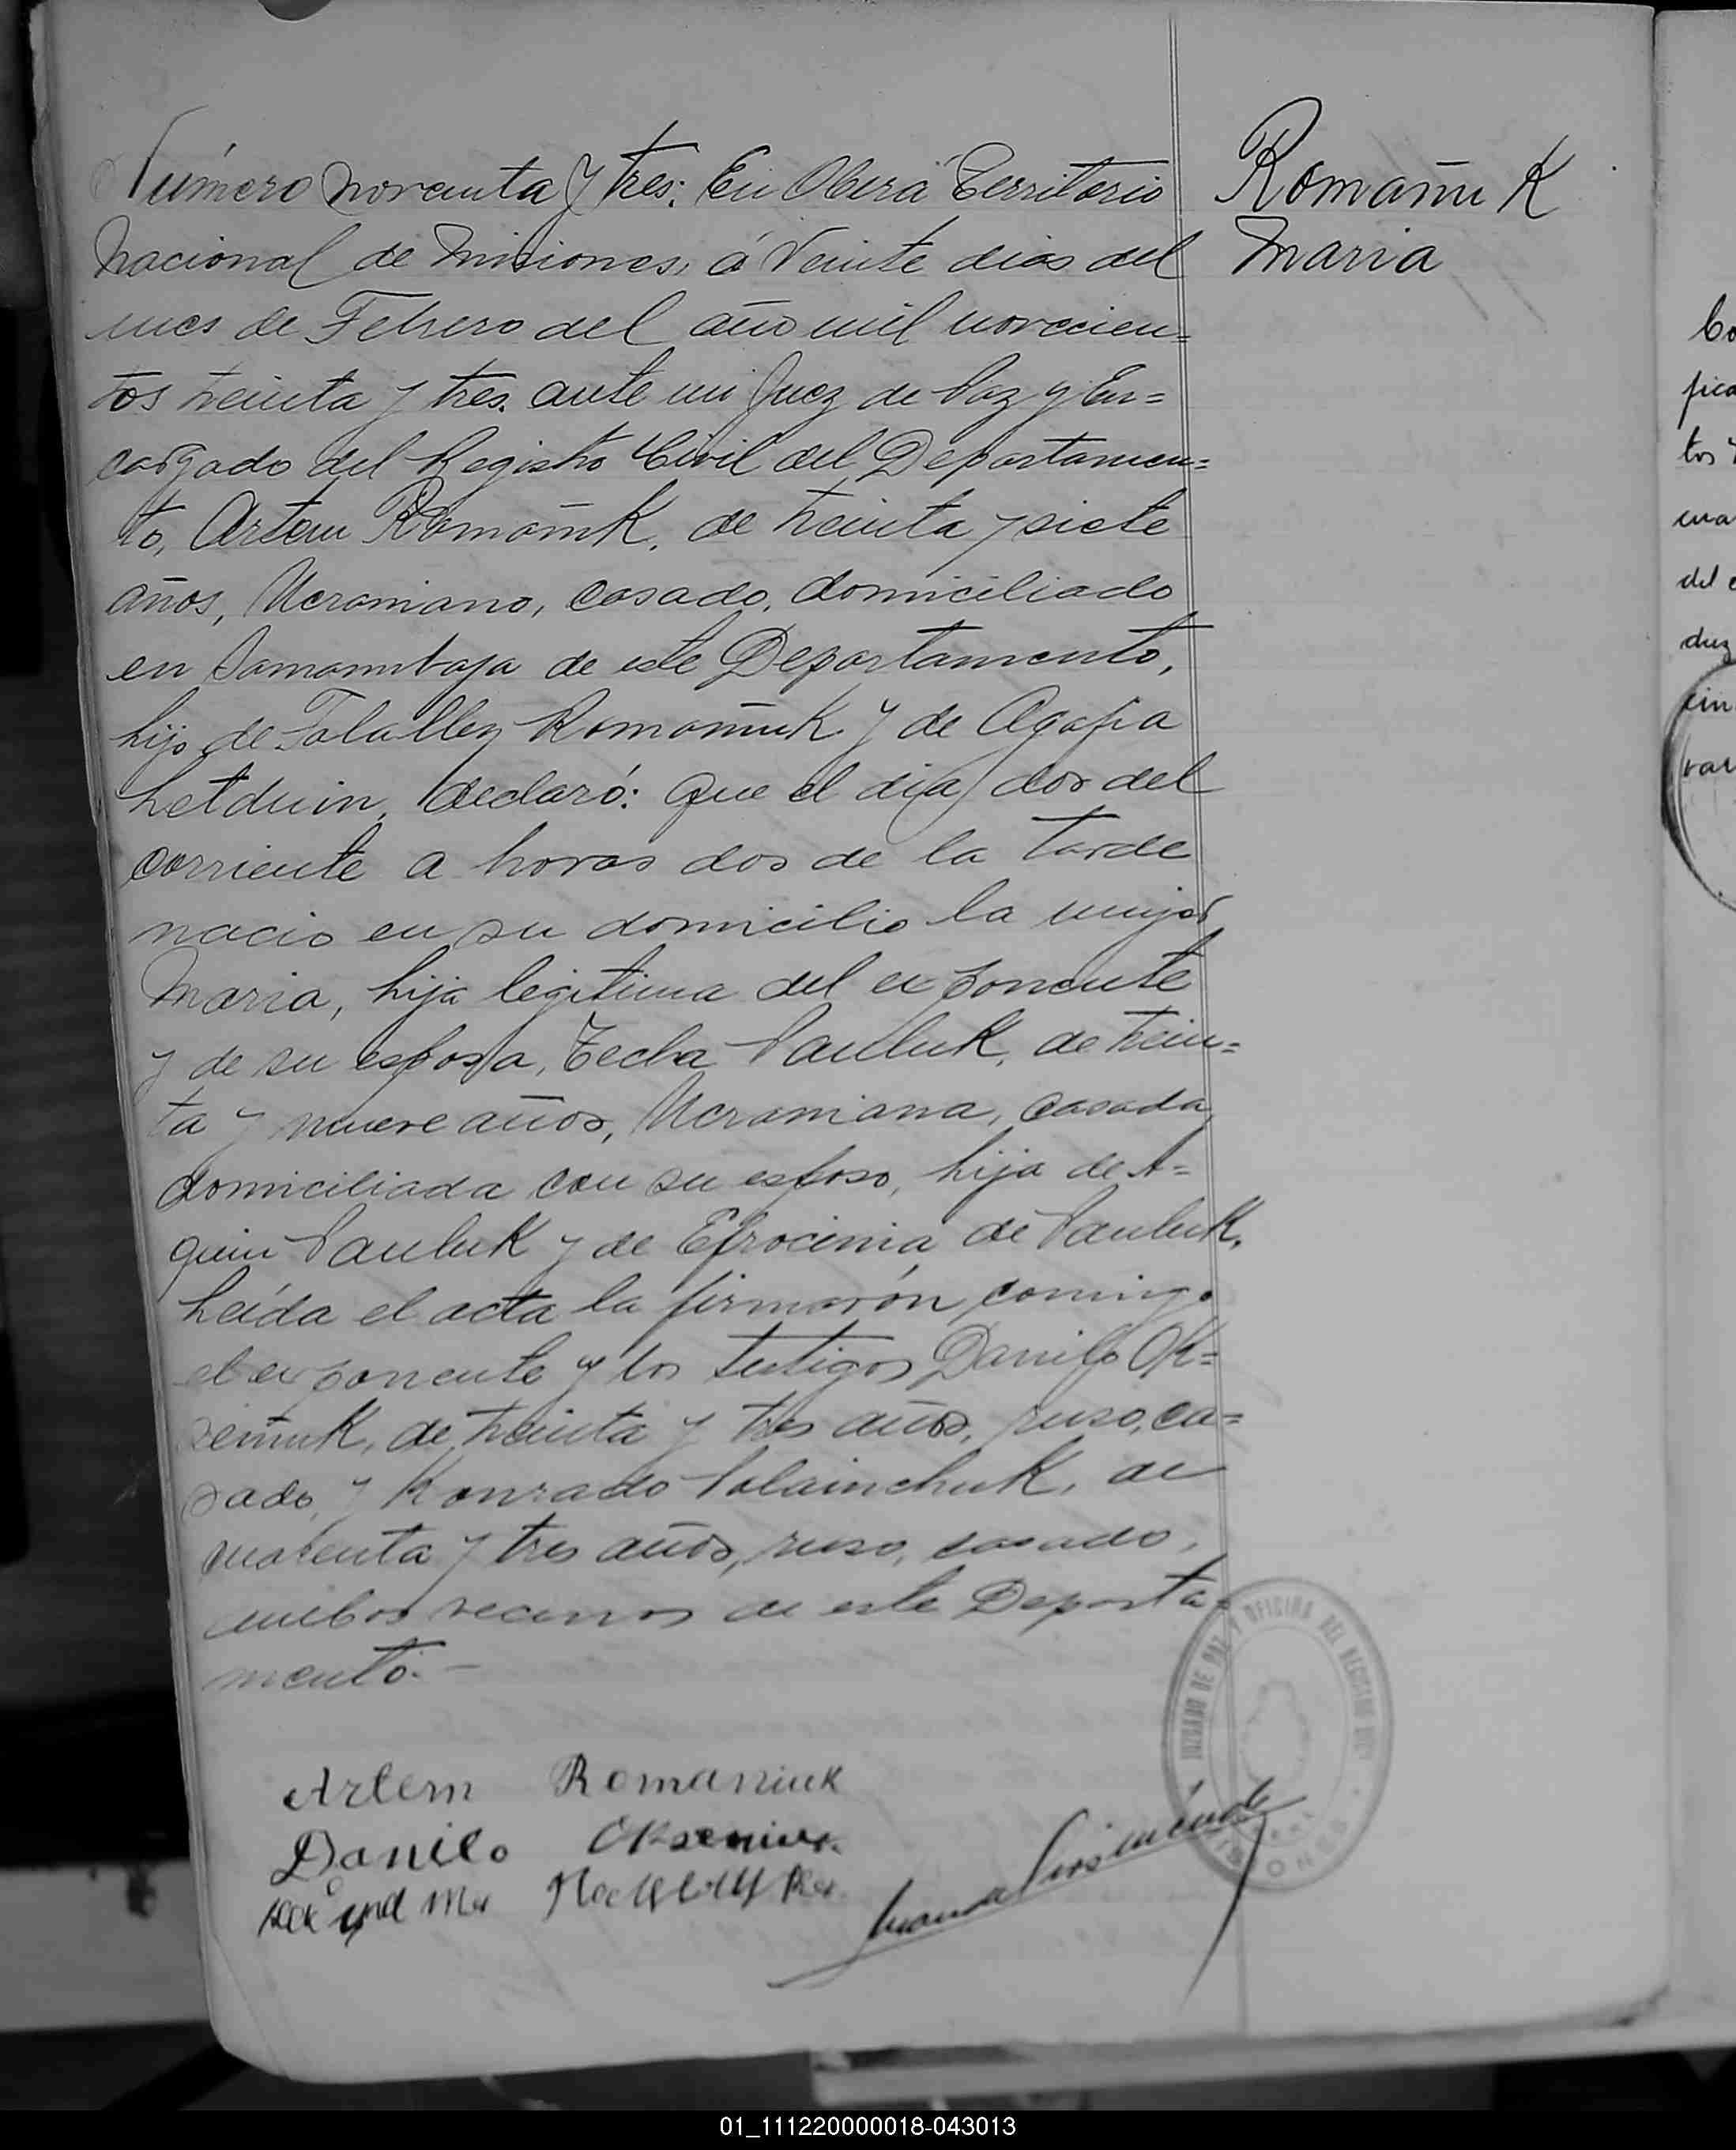 Número noventa y tres: En Oberá Territorio
Nacional de Misiones, á Veinte dias del
mes de Febrero del año mil novecien=
tos treinta y tres. ante mi Juez de Paz y En=
cargado del Registro Civil del Departamen=
to, Artem Romañuk, de treinta y siete
años, Ucraniano, casado, domiciliado
en de este Departamento,
hijo de Romañuk y de Agafia
declaró: Que el dia dos del
corriente a horas dos de la tarde
nacio en su domicilio la mujer
Maria, hija legitima del exponente
y de su esposa, Tecla Pauluk, de trein=
ta y nueve años, Ucraniana, casada,
domiciliada con su esposo, hija de A=
quin Pauluk y de Efrocinia de Pauluk.
Leída el acta la firmarón conmigo
el exponente y los testigos Danilo Ok=
señuk, de treinta y tres años, ruso, ca=
sado, y Konrado de
cuarenta y tres años, ruso, casado,
ambos vecinos de este Departa=
mento.-
Romañuk
Maria
Artem Romaniuk
Danilo
JUZGADO DE PAZ Y OFICINA DEL REGISTRO CIVIL
MISIONES
01_111220000018-043013